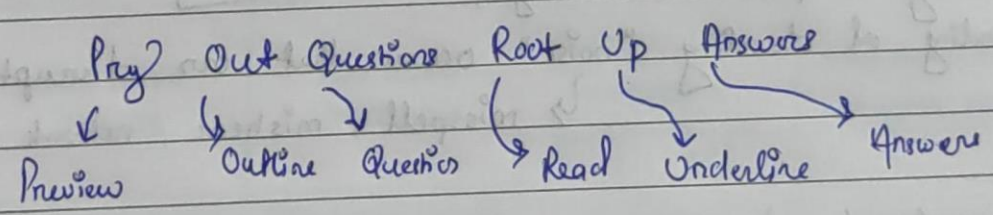 Pry? Out Questions Root Up Answers
Preview Outline Questios Read Underline Answers